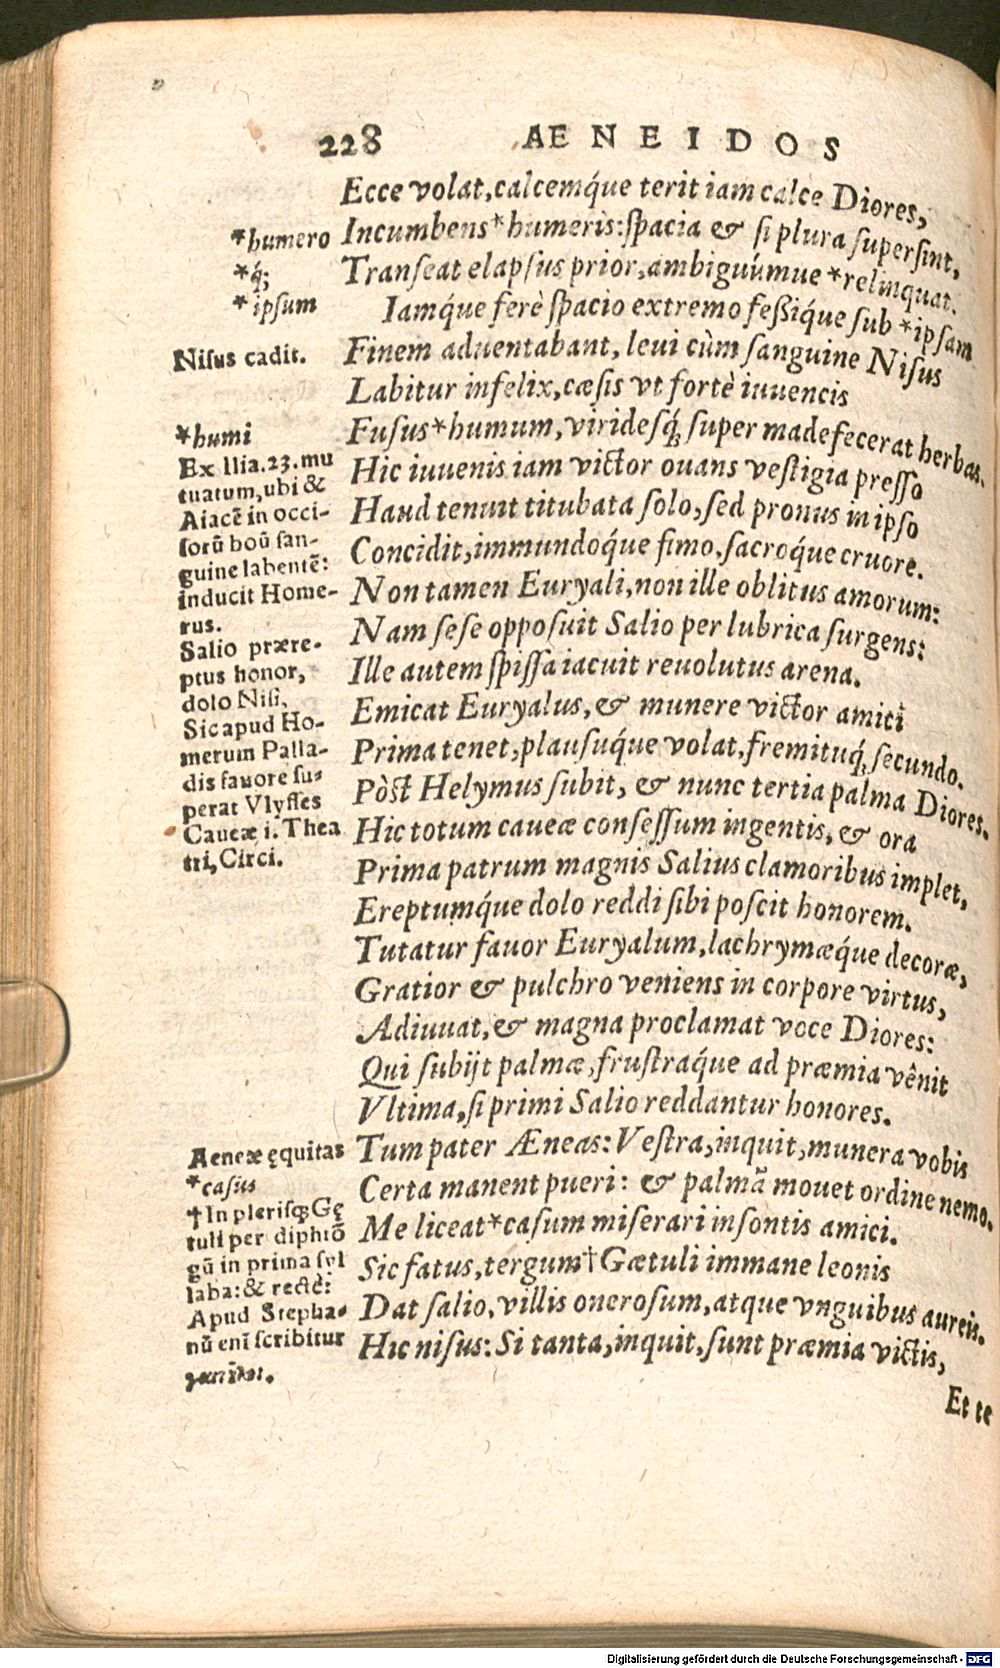 228 AENEIDOS
Ecce volat, calcemq́ue terit iam calce Diores,
Incumbens*humeris: spacia & si plura supersint,
Transeat elapsus prior, ambiguúmue *relinquat.
Iamq́ue ferè spacio extremo feßiq́ue sub *ipsam
Finem aduentabant, leui cùm sanguine Nisus
Labitur infelix, cæsis vt fortè iuuencis
Fusus*humum, viridesq́; super madefecerat herbas.
Hic iuuenis iam victor ouans vestigia presso
Haud tenuit titubata solo, sed pronus in ipso
Concidit, immundoq́ue fimo, sacroq́ue cruore.
Non tamen Euryali, non ille oblitus amorum:
Nam sese opposuit Salio per lubrica surgens:
Ille autem spissa iacuit reuolutus arena.
Emicat Euryalus, & munere victor amici
Prima tenet, plausuq́ue volat, fremituq́; secundo.
Pòst Helymus subit, & nunc tertia palma Diores.
Hic totum caueæ consessum ingentis, & ora
Prima patrum magnis Salius clamoribus implet,
Ereptumq́ue dolo reddi sibi poscit honorem.
Tutatur fauor Euryalum, lachrymæq́ue decoræ,
Gratior & pulchro veniens in corpore virtus,
Adiuuat, & magna proclamat voce Diores:
Qui subijt palmæ, frustraq́ue ad præmia vênit
Vltima, si primi Salio reddantur honores.
Tum pater Æneas: Vestra, inquit, munera vobis
Certa manent pueri: & palmã mouet ordine nemo.
Me liceat*casum miserari insontis amici.
Sic fatus, tergum†Gætuli immane leonis
Dat salio, villis onerosum, atque vnguibus aureis.
Hic nisus: Si tanta, inquit, sunt præmia victis,
Et te
*humero
*q́;
*ipsum
Nisus cadit.
*humi
Ex Ilia.23.mu
tuatum, ubi &
Aiacẽ in occi-
sorũ boũ san-
guine labentẽ:
inducit Home-
rus.
Salio prære-
ptus honor,
dolo Nisi,
Sic apud Ho-
merum Palla-
dis fauore su-
perat Vlysses
Caueæ i. Thea
tri, Circi.
Aeneæ ęquitas
*casus
†In plerisq; Gę
tuli per diphtõ
gũ in prima syl
laba: & rectè:
Apud Stepha-
nũ enĩ scribitur